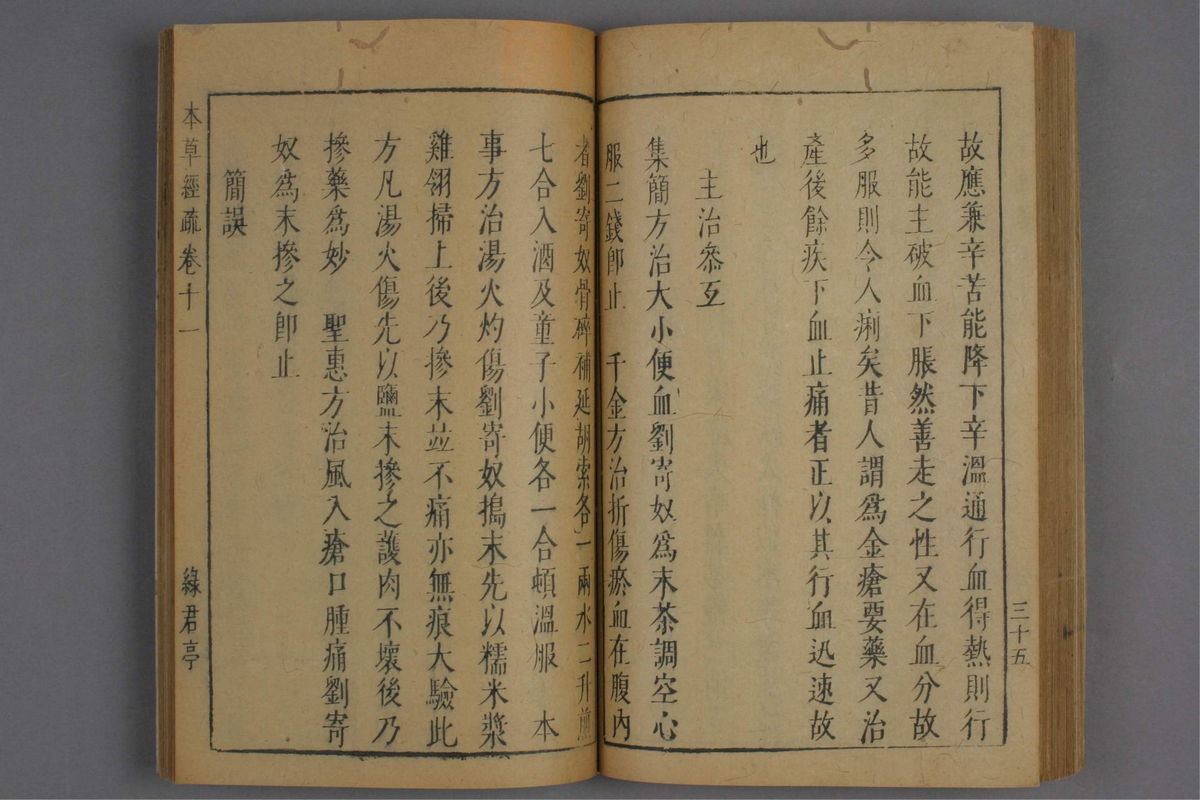 故應兼辛苦能降下辛溫通行血得熱則行
故能主破血下脹然善走之性又在血分故
多服則令人痢矣昔人謂爲金瘡要藥又治
產後餘疾下血止痛者正以其行血迅速故
也
主治叅互
集簡方治大小便血劉寄奴爲末茶調空心
服二錢卽止　千金方治折傷瘀血在腹內
者劉寄奴骨碎補延胡索各一兩水二升煎
七合入酒及童子小便各一合頓溫服　本
事方治湯火灼傷劉寄奴搗末先以糯米漿
雞翎掃上後乃摻末並不痛亦無痕大驗此
方凡湯火傷先以鹽末摻之護肉不壞後乃
摻藥爲妙　聖惠方治風入瘡口腫痛劉寄
奴爲末摻之卽止
簡誤
三十五
本草經疏卷十一
綠君亭